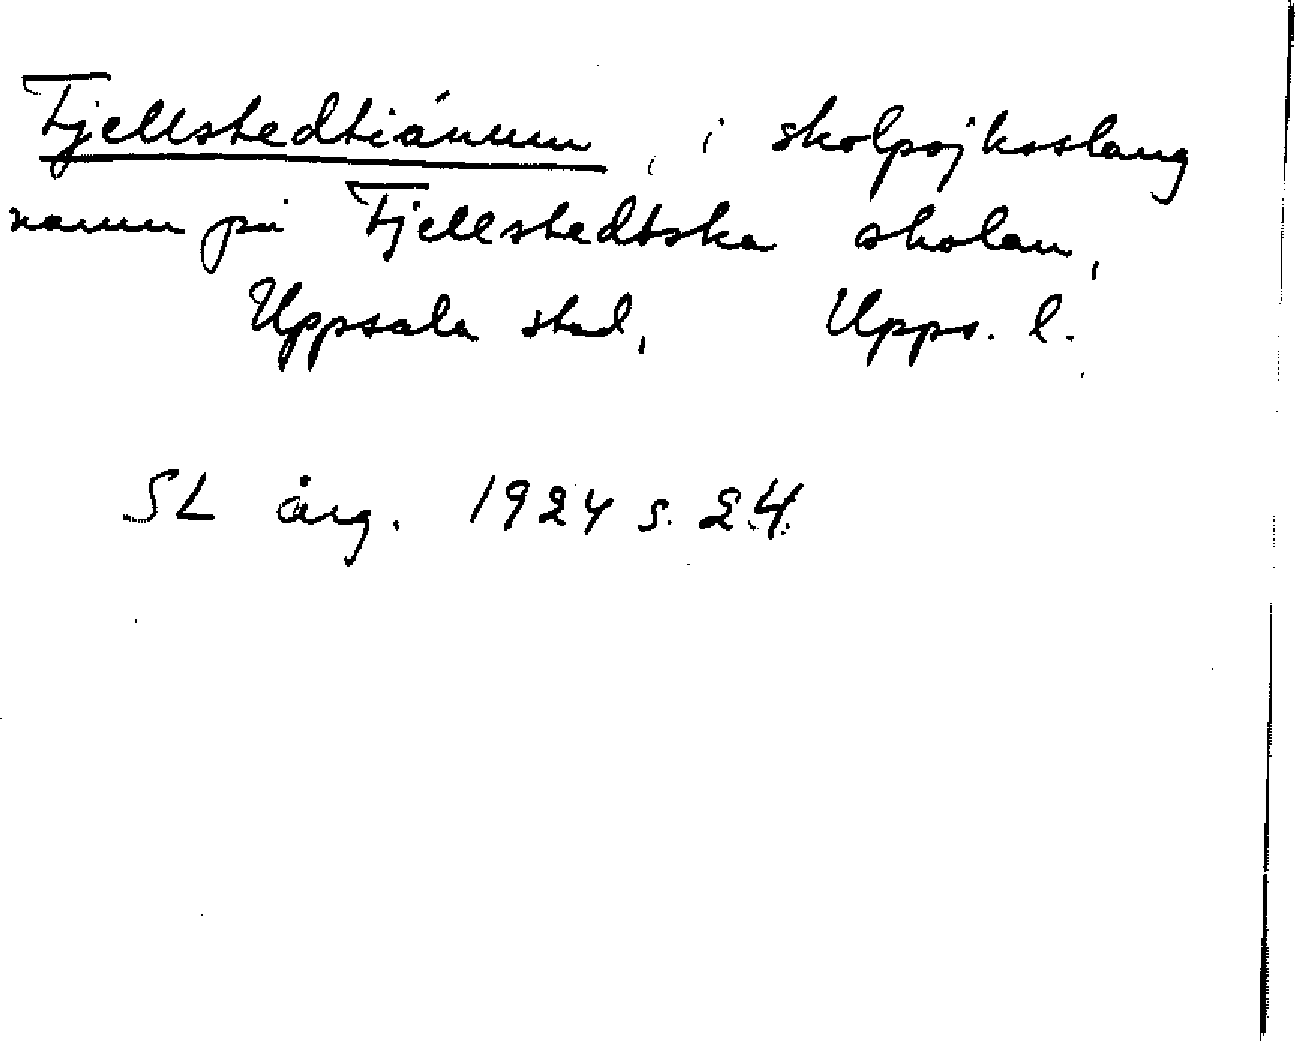 Fjellstedtiánum, i skolpojksslang
namn på Fjellstedtska skolan,
Uppsala stad, Upps. l.
SL årg. 1924 s. 24.